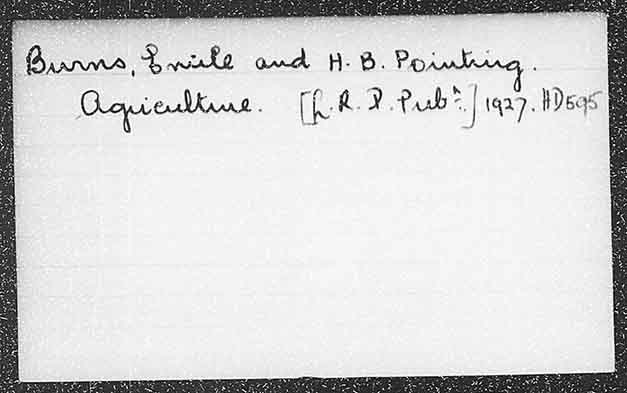 Burns, Emile and H. B. Pointing.
Agriculture. [L. R. D. Pubn.] 1927. HD595